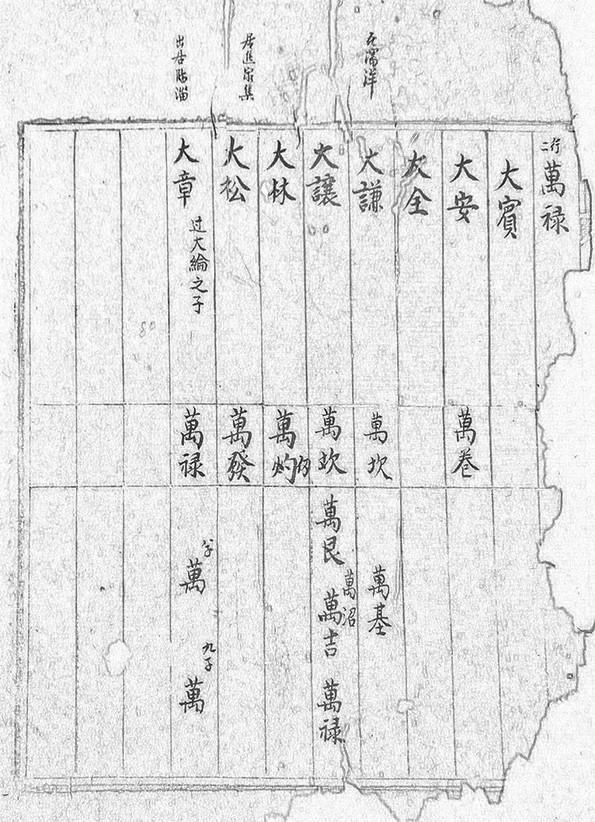 二行 萬禄
大賓
大安 萬卷
大全
大謙 萬坎 萬基
萬沼
大讓 萬坎 萬艮 萬吉 萬禄
大林 萬灼
大松 萬發
大章 过大綸之子 萬禄 萬 九子 萬
出居臨淄